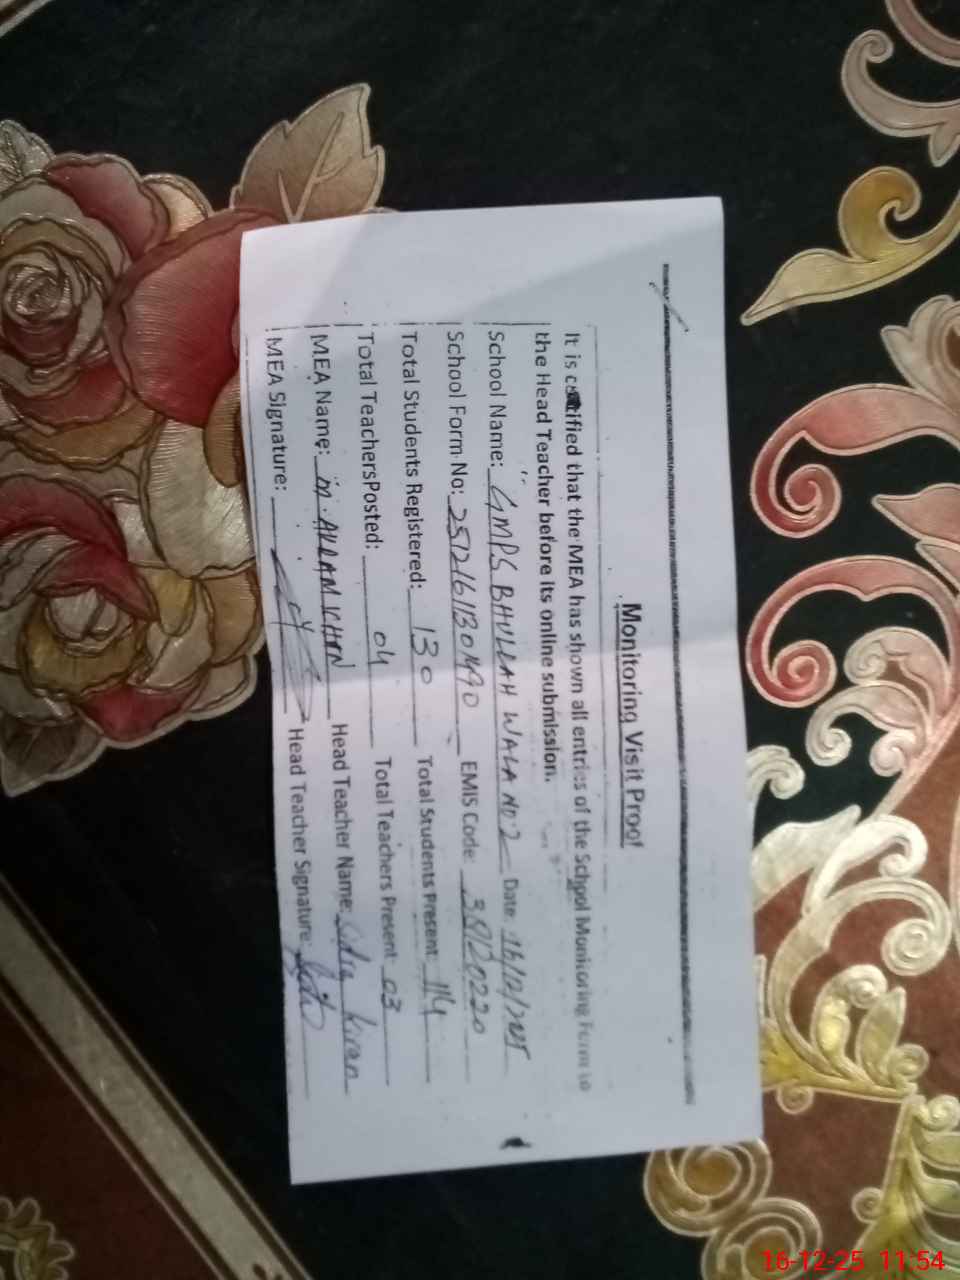 Monitoring Visit Proof
It is certified that the MEA has shown all entries of the School Monitoring Form to
the Head Teacher before its online submission.
School Name: GMPS BHULLAH WALA NO 2 Date: 16/12/2025
School Form No: 2512161130490 EMIS Code: 38120220
Total Students Registered: 130 Total Students Present: 114
Total TeachersPosted: 04 Total Teachers Present: 03
MEA Name: M. AKRAM KHAN Head Teacher Name: Sidra Kiran
MEA Signature: Head Teacher Signature:
16-12-25 11:54